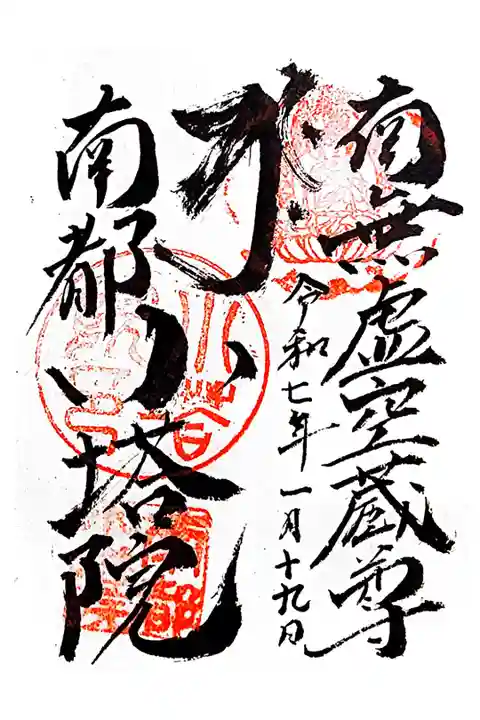 南無虚空蔵尊
令和七年一月十九日
南都小塔院